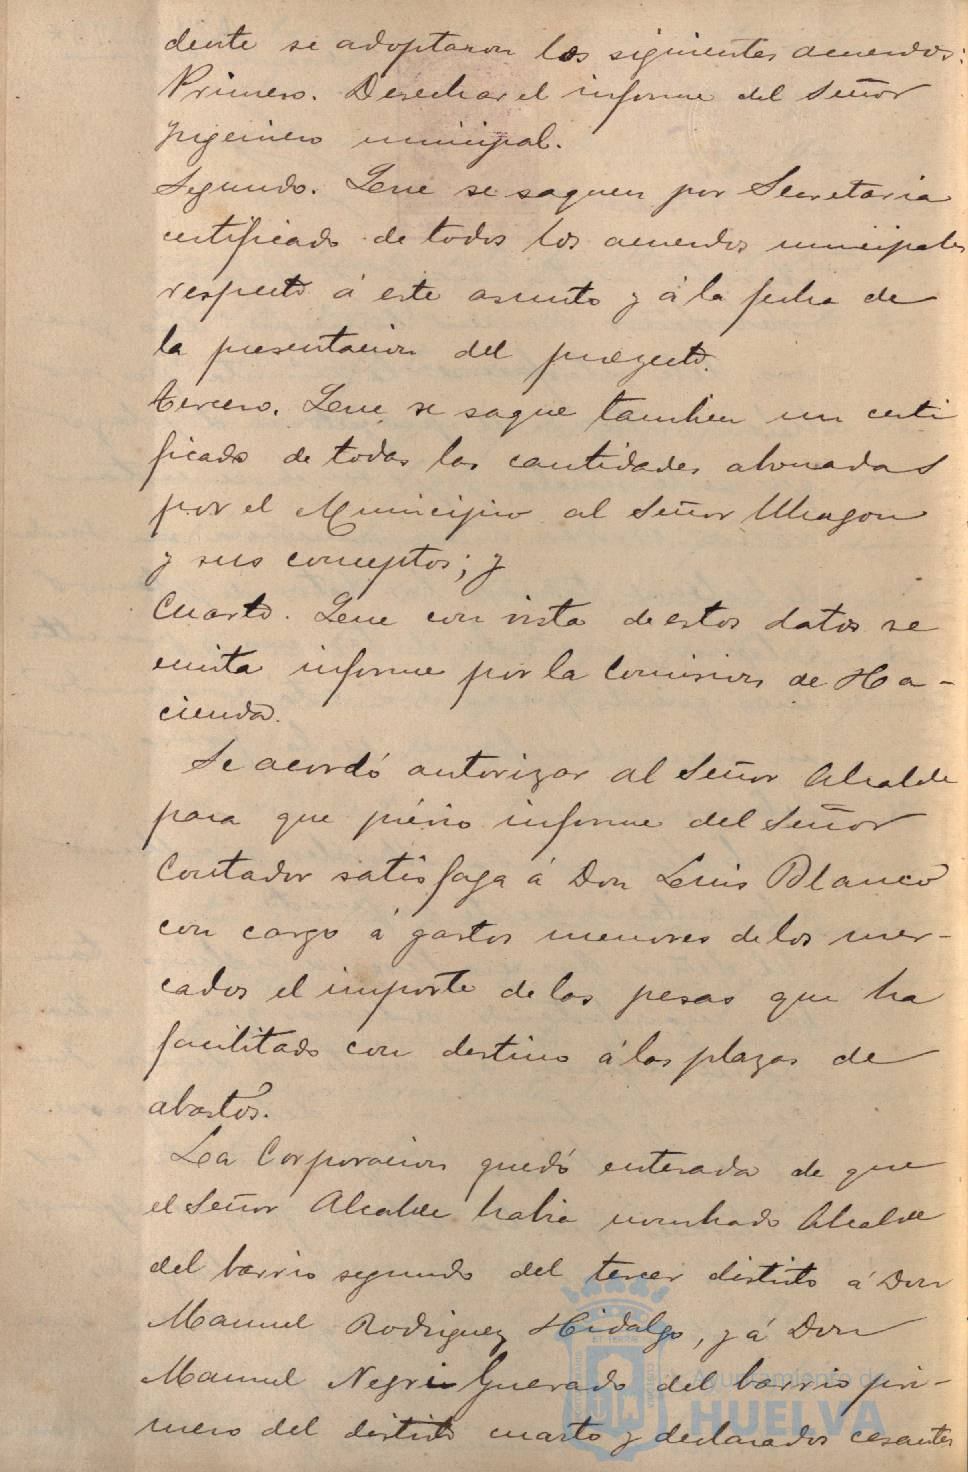 dente se adoptaron los siguientes acuerdos:
Primero. Desechar el informe del Señor
Yngeniero municipal.
Segundo. Que se saquen por Secretaria
certificado de todos los acuerdos municipales
respecto á este asunto y á la fecha de
la presentacion del proyecto.
tercero. Que se saque tambien un certi
ficado de todas las cantidades abonadas
por el Municipio al Señor Mragon
y sus conceptos; y
Cuarto. Que con vista de estos datos se
emita informe por la Comision de Ha-
cienda.
Se acordó autorizar al Señor Alcalde
para que prévio informe del Señor
Contador satisfaga á Don Luis Blanco
con cargo á gastos menores de los mer-
cados el importe de las pesas que ha
facilitado con destino á las plazas de
abastos.
La Corporacion quedó enterada de que
el Señor Alcalde habia nombrado Alcalde
del barrio segundo del tercer distrito á Don
Manuel Rodriguez Hidalgo, y á Don
Manuel Negri Quevado del barrio pri-
mero del distrito cuarto y declarados cesantes
Ayuntamiento de
HUELVA